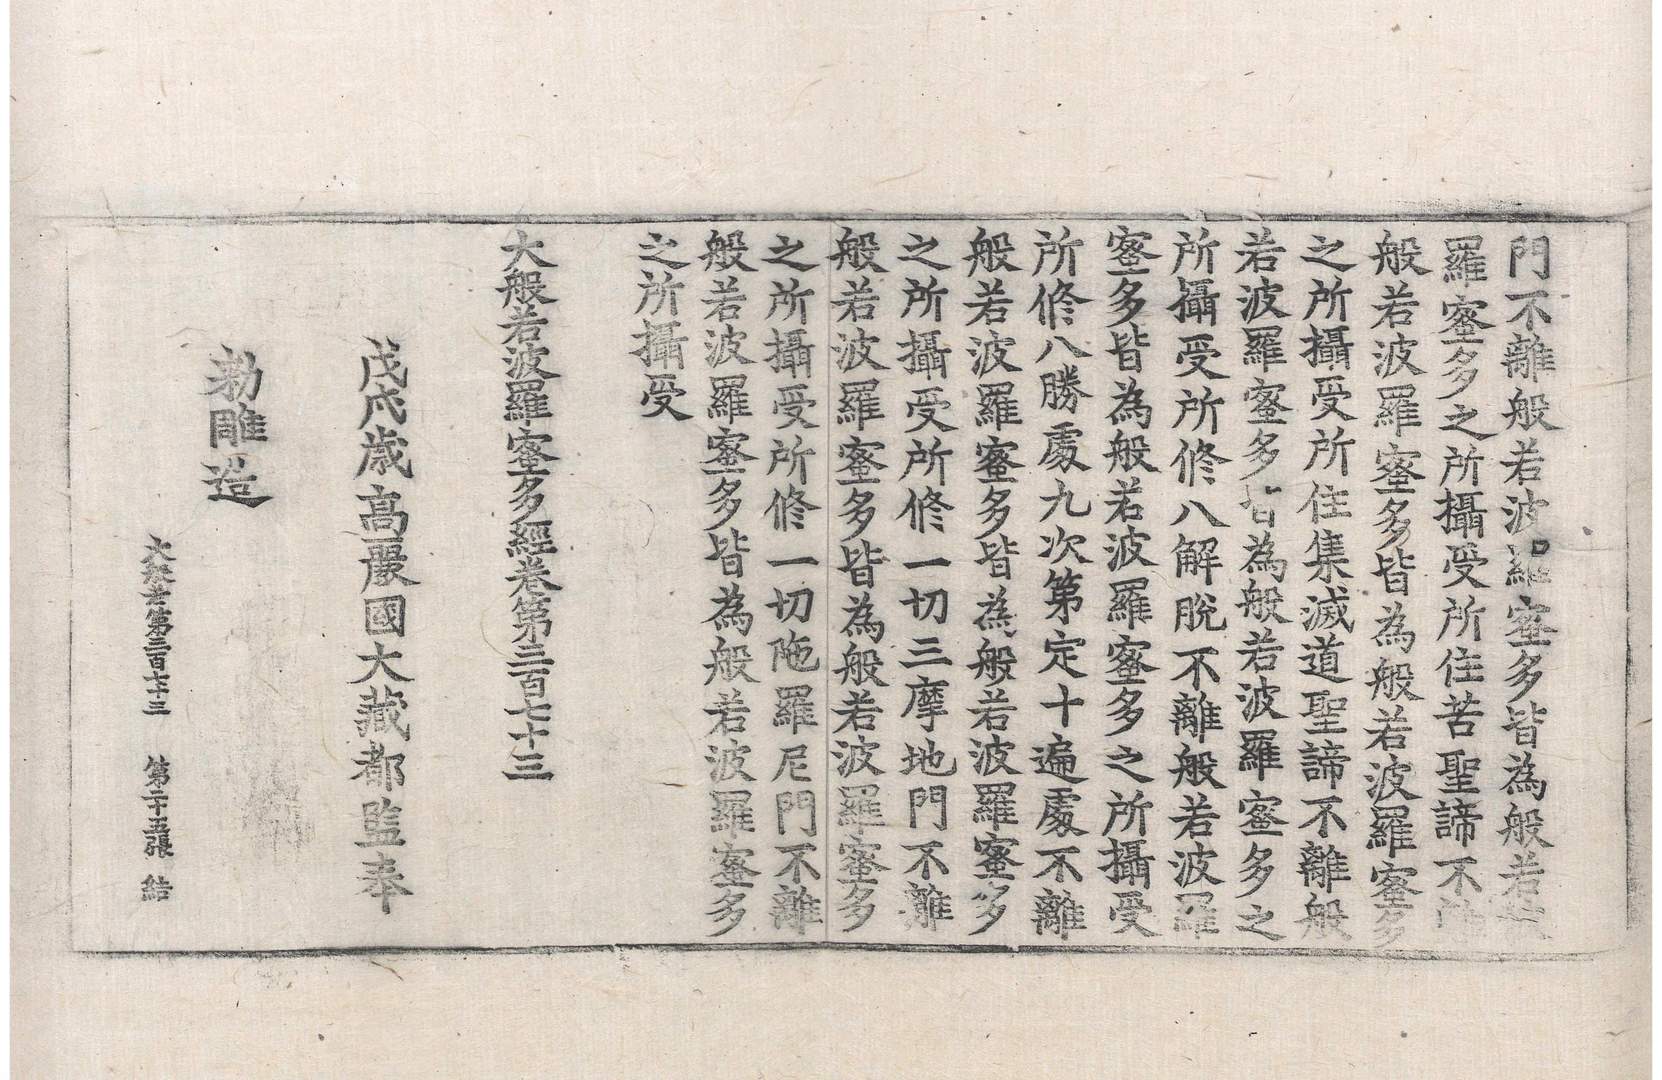 門不離般若波羅蜜多皆為般若波
羅蜜多之所攝受所住苦聖諦不離
般若波羅蜜多皆為般若波羅蜜多
之所攝受所住集滅道聖諦不離般
若波羅蜜多皆為般若波羅蜜多之
所攝受所修八解脫不離般若波羅
蜜多皆為般若波羅蜜多之所攝受
所修八勝處九次第定十遍處不離
般若波羅蜜多皆為般若波羅蜜多
之所攝受所修一切三摩地門不離
般若波羅蜜多皆為般若波羅蜜多
之所攝受所修一切陁羅尼門不離
般若波羅蜜多皆為般若波羅蜜多
之所攝受
大般若波羅蜜多經卷第三百七十三
戊戌歲高麗國大藏都監奉
勅雕造
大般若第三百七十三 第二十五張 結